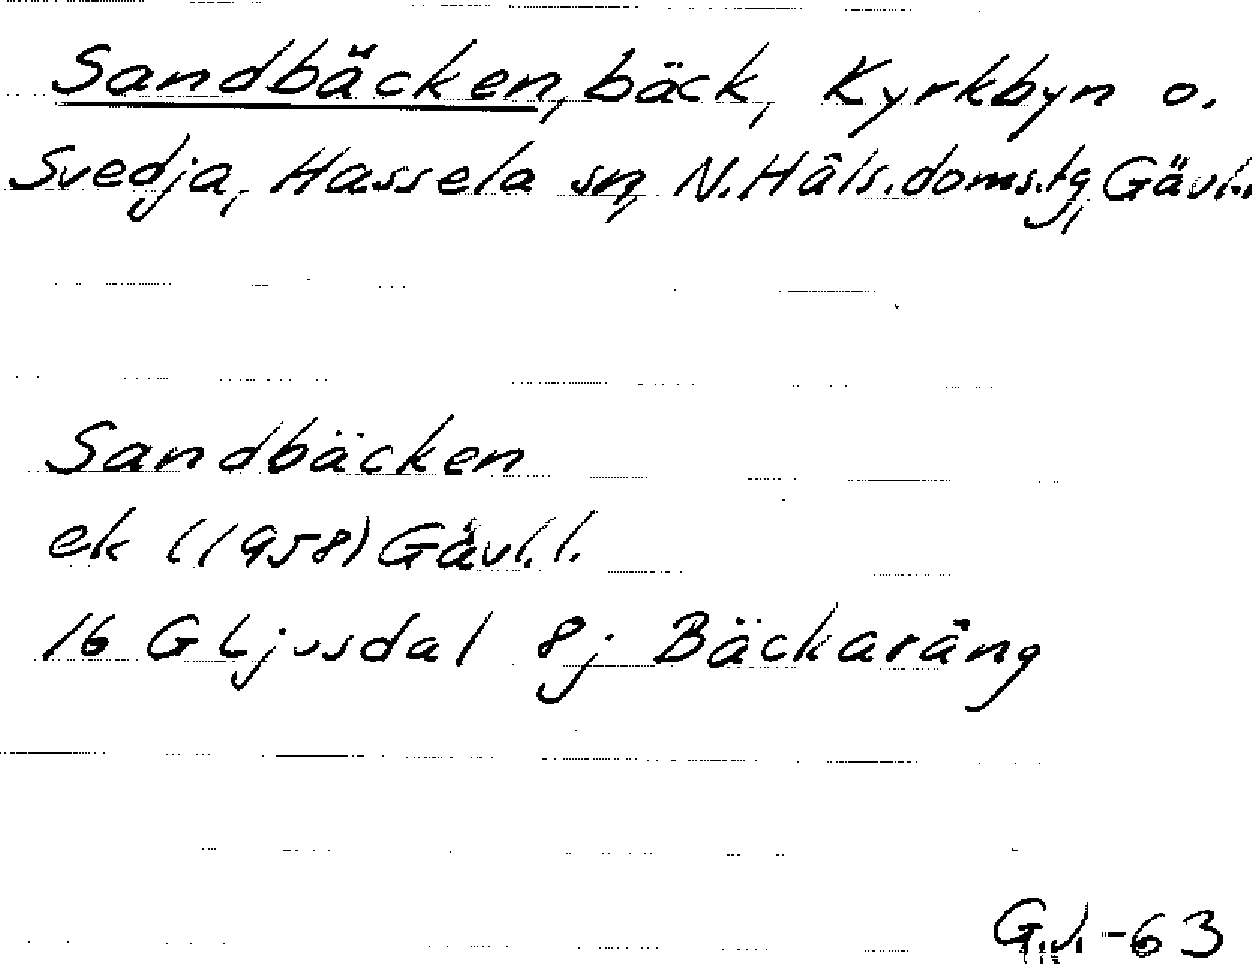 Sandbäcken, bäck, Kyrkbyn o.
Svedja, Hassela sn, N.Häls.doms.tg, Gävl.
Sandbäcken
ek (1958) Gävl.l.
16 G Ljusdal 8j Bäckaräng
-63